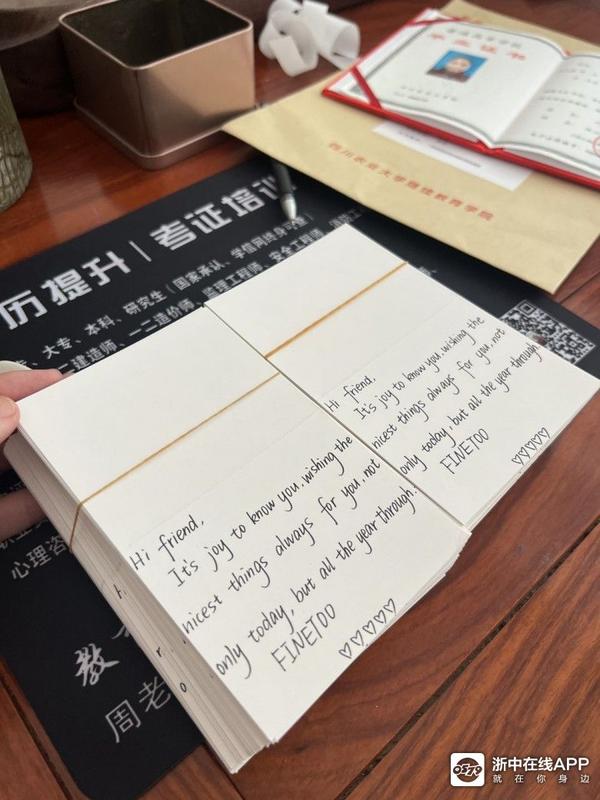 毕业证书
四川农业大学继续教育学院
历提升 | 考证培训
大专、本科、研究生(国家承认、学信网终身可查)
一建造师、一二造价师、监理工程师、安全工程师
心理咨
教
周老
Hi friend,
It's joy to know you.wishing the
nicest things always for you, not
only today, but all the year through.
FINETOO
♡♡♡♡♡
Hi friend,
It's joy to know you.wishing the
nicest things always for you, not
only today, but all the year through.
FINETOO
♡♡♡♡♡
浙中在线APP
就在你身边